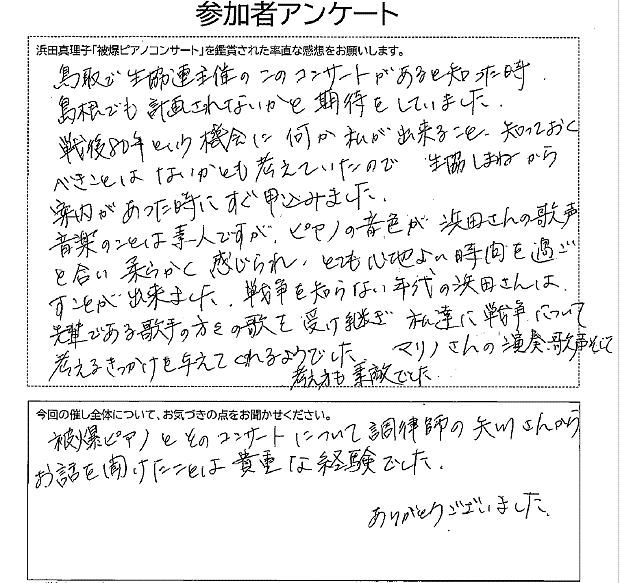 参加者アンケート
浜田真理子「被爆ピアノコンサート」を鑑賞された率直な感想をお願いします。
鳥取で生協連主催のこのコンサートがあると知った時、
島根でも計画されないかと期待をしていました。
戦後80年という機会に何か私が出来ること、知っておく
べきことはないかとも考えていたので 生協しまねから
案内があった時にすぐ申込みました。
音楽のことは素人ですが、ピアノの音色が浜田さんの歌声
と合い柔らかく感じられ、とても心地よい時間を過ご
すことが出来ました。戦争を知らない年代の浜田さんは、
先輩である歌手の方々の歌を受け継ぎ 私達に戦争について
考えるきっかけを与えてくれるようでした。 マリノさんの演奏、歌声そして
考え方も素敵でした。
今回の催し全体について、お気づきの点をお聞かせください。
被爆ピアノとそのコンサートについて調律師の矢川さんから
お話を聞けたことは貴重な経験でした。
ありがとうございました。